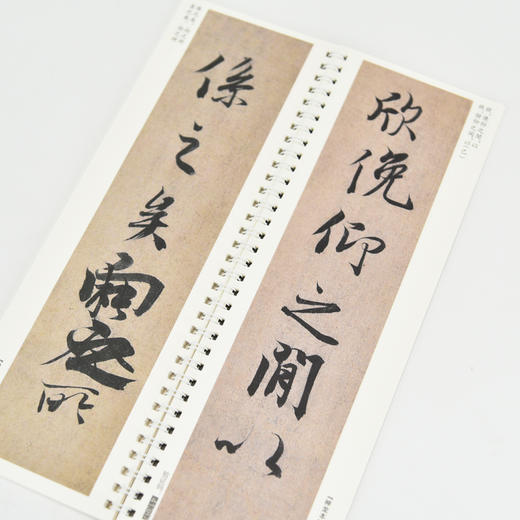 係之矣向之所
欣俛仰之閒以